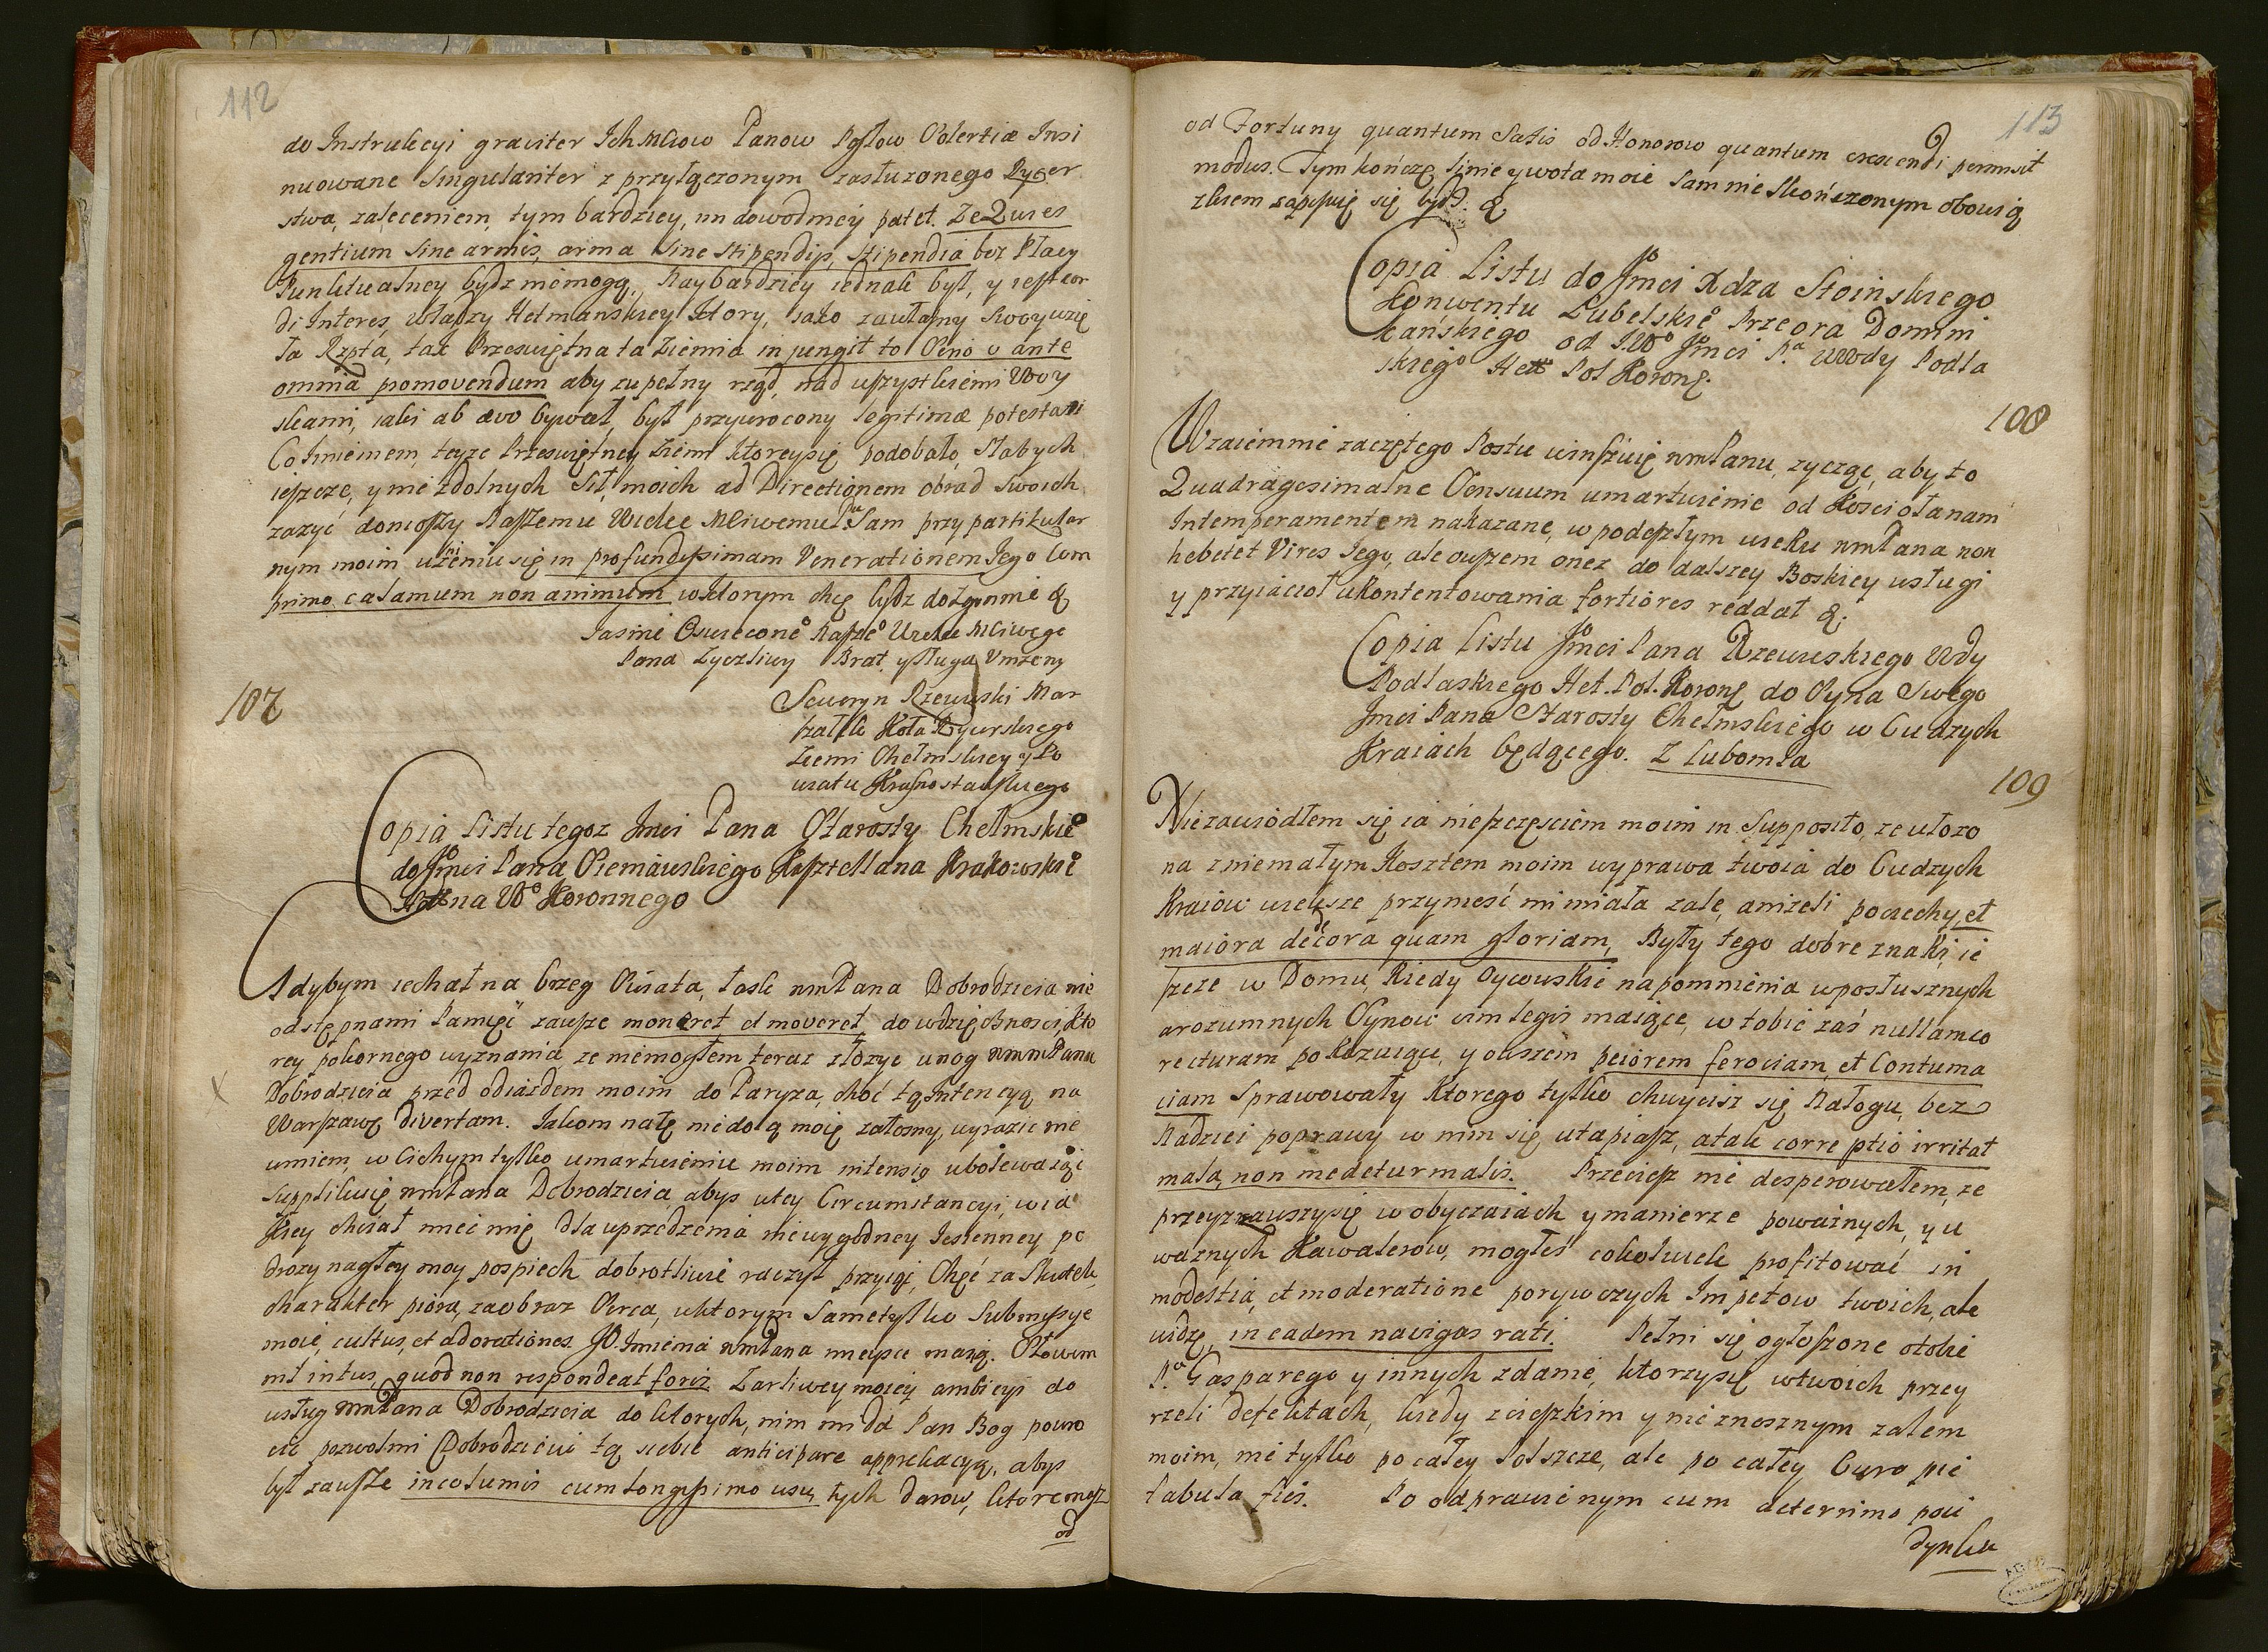 112
do Instrukcyi graviter Ich Mciow Panow Posłow Solertiæ Insi
nuowane Singulariter z przyłączonym zasłuzonego Rycer
stwa, zaleceniem, tym bardziey, im dowodniey patet. Ze Quies
gentium Sine armis, arma Sine Stipendijs, Stipendia bez Płacy
Punktualney bydz niemogą, Naybardziey iednak był, y iest cor
di Interes, władzy Hetmanskiey Ktory, iako zawłasny Swoy wzię
ta Rzpta, tak Przeswiętna ta Ziemia in pungit to Seriō v ante
omnia promovendum aby zupełny rząd, nad wszystkiemi Woy
skami, iaki ab ævo bywał, był przywrocony legitimæ potestati
Co Imieniem, teyze Przeswiętney Ziemi ktoreysię podobało, słabych
ieszcze, y nie zdolnych Sił, moich ad Directionem obrad Swoich
zazyć donioszy Naszemu Wielce Mciwemu Pu Sam przy partikular
nym moim uniżeniu się in profundissimam Venerationem Jego com
primo calamum non animum wktorym chcę bydz dozgonnie &
Jasnie Oswiecone° Naszde° Wielce Mciwego
Pana Zyczliwy Brat y sługa Uniżeny
Seweryn Rzewuski Mar
szałek Koła Rycerskiego
Ziemi Chełmskiey y Po
wiatu Krasnostawskiego
107
Copia Listu tegoz Jmci Pana Starosty Chełmskie°
do Jmci Pana Sieniawskiego Kasztellana Krakowskie°
Hettna W° Koronnego
Gdybym iechał na brzeg Swiata, łask wmPana Dobrodzieia nie
odstępnami Pamięć zawsze moneret et moveret do wdzięcznosci, kto
rey pokornego wyznania, ze niemogłem teraz złozyć unog WmmPana
Dobrodzieia przed odiazdem moim do Paryza, choć tą Intencyą na
Warszawę divertam. Jakom natę niedolą moię załosny, wyrazić nie
umiem, w Cichym tylko umartwieniu moim intensio ubolewaiąc
Supplikuię wmPana Dobrodzieia, abys wtey Circumstancyi, wia
kiey chciał mieć mię dla uprzedzenia niewygodney Jesienney po
drozy nagłey moy pospiech dobrotliwie raczył przyiąć, Chęć za Skutek,
charakter pióra, zaobraz Serca, wktorym Sametylko Submissye
moie, cultus, et adorationes JO. Imienia wmPana mieysce maią. Słowem
nil intus, quod non respondeat foris Zarliwey moiey ambicyi do
usług wmPana Dobrodzieia do ktorych, nim mi da Pan Bog powro
cic pozwolmi Dobrodzieiu tą siebie anticipare apprekacyą, abys
był zawsze incolumis cum longissimo usu, tych darow, ktoremasz
od
113
od Fortuny quantum Satis od Honorow quantum crescendi permisit
modus. Tym kończę linie ywota moie Sam nie skończonym obowią
zkiem zapisuię się bydz. &
Copia Listu do Jmci Xdza Stoinskiego
Konwentu Lubelskie° Przeora Domini
kańskiego od J.W° Jmci Pa Wdy Podla
skiego Hett Pol Koronę.
108
Wzaiemnie zaczętego Postu winszuię wmPanu, zycząc, aby to
Quadragesimalne Sensuum umartwienie od Kosciołanam
Intemperamentem nakazane, w podeszłym wieku wmPana non
hebetet Vires Jego, ale owszem onez do dalszey Boskiey usługi
y przyiacioł ukontentowania fortiores reddat &.
Copia Listu Jmci Pana Rzewuskiego Wdy
Podlaskiego Het. Pol. Koronę do Syna Swego
Jmci Pana Starosty Chełmskiego w Cudzych
Kraiach będącego. Z Lubomla
109
Niezawiodłem się ia nieszczęsciem moim in Supposito, ze ułozo
na zniemałym Kosztem moim wyprawa twoia do Cudzych
Kraiow większe przyniesć mi miała zale, anizeli pociechy, et
maiora dedecora quam gloriam, Były tego dobre znaki, ie
szcze w Domu, Kiedy Oycowskie napomnienia wposłusznych
arozumnych Synow vim legis maiące, w tobie zaś nullam co
recturam pokazuiąc, y owszem peiorem ferociam, et Contuma
ciam Sprawowały Ktorego tylko chwycisz się Nałogu, bez
Nadziei poprawy w nim się utapiasz, atak correptio irritat
mala, non medetur malis. Przeciesz nie desperowałem, ze
przeyzrawszysię w obyczaiach y manierze powaznych, y u
waznych Kawalerow, mogłeś cokolwiek profitować in
modestia, et moderatione porywczych Impetow twoich, ale
widzę, in eadem navigas rati. Pełni się ogłoszone otobie
Pa Gasparego y innych zdanie, ktorzysię wtwoich przey
rzeli defektach, kiedy zcięszkim y nieznosznym zalem
moim, nie tylko po całey Polszcze, ale po całey Euro pie
fabula fies. Po odprawienym cum deterrimo poie
dynku